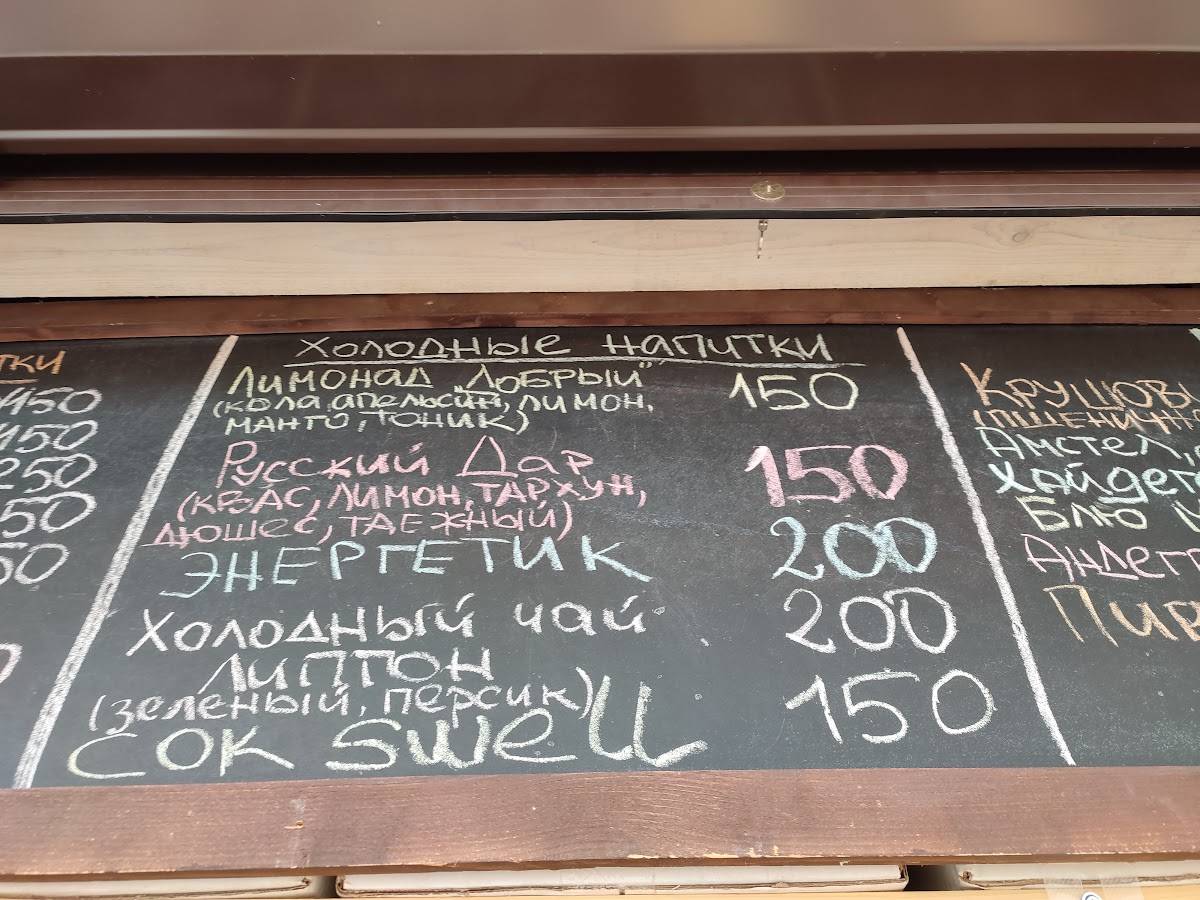 ТКИ
150
150
250
50
50
Холодные напитки
Лимонад "Добрый" 150
(кола, апельсин, лимон,
манго, тоник)
Русский Дар 150
(квас, лимон, тархун,
дюшес, таежный)
Энергетик 200
Холодный чай 200
Липтон
(зеленый, персик)
Сок Swell 150
Крушови
(пшенич
Амстел,
Хайдег
Блю М
Андегр
Пир